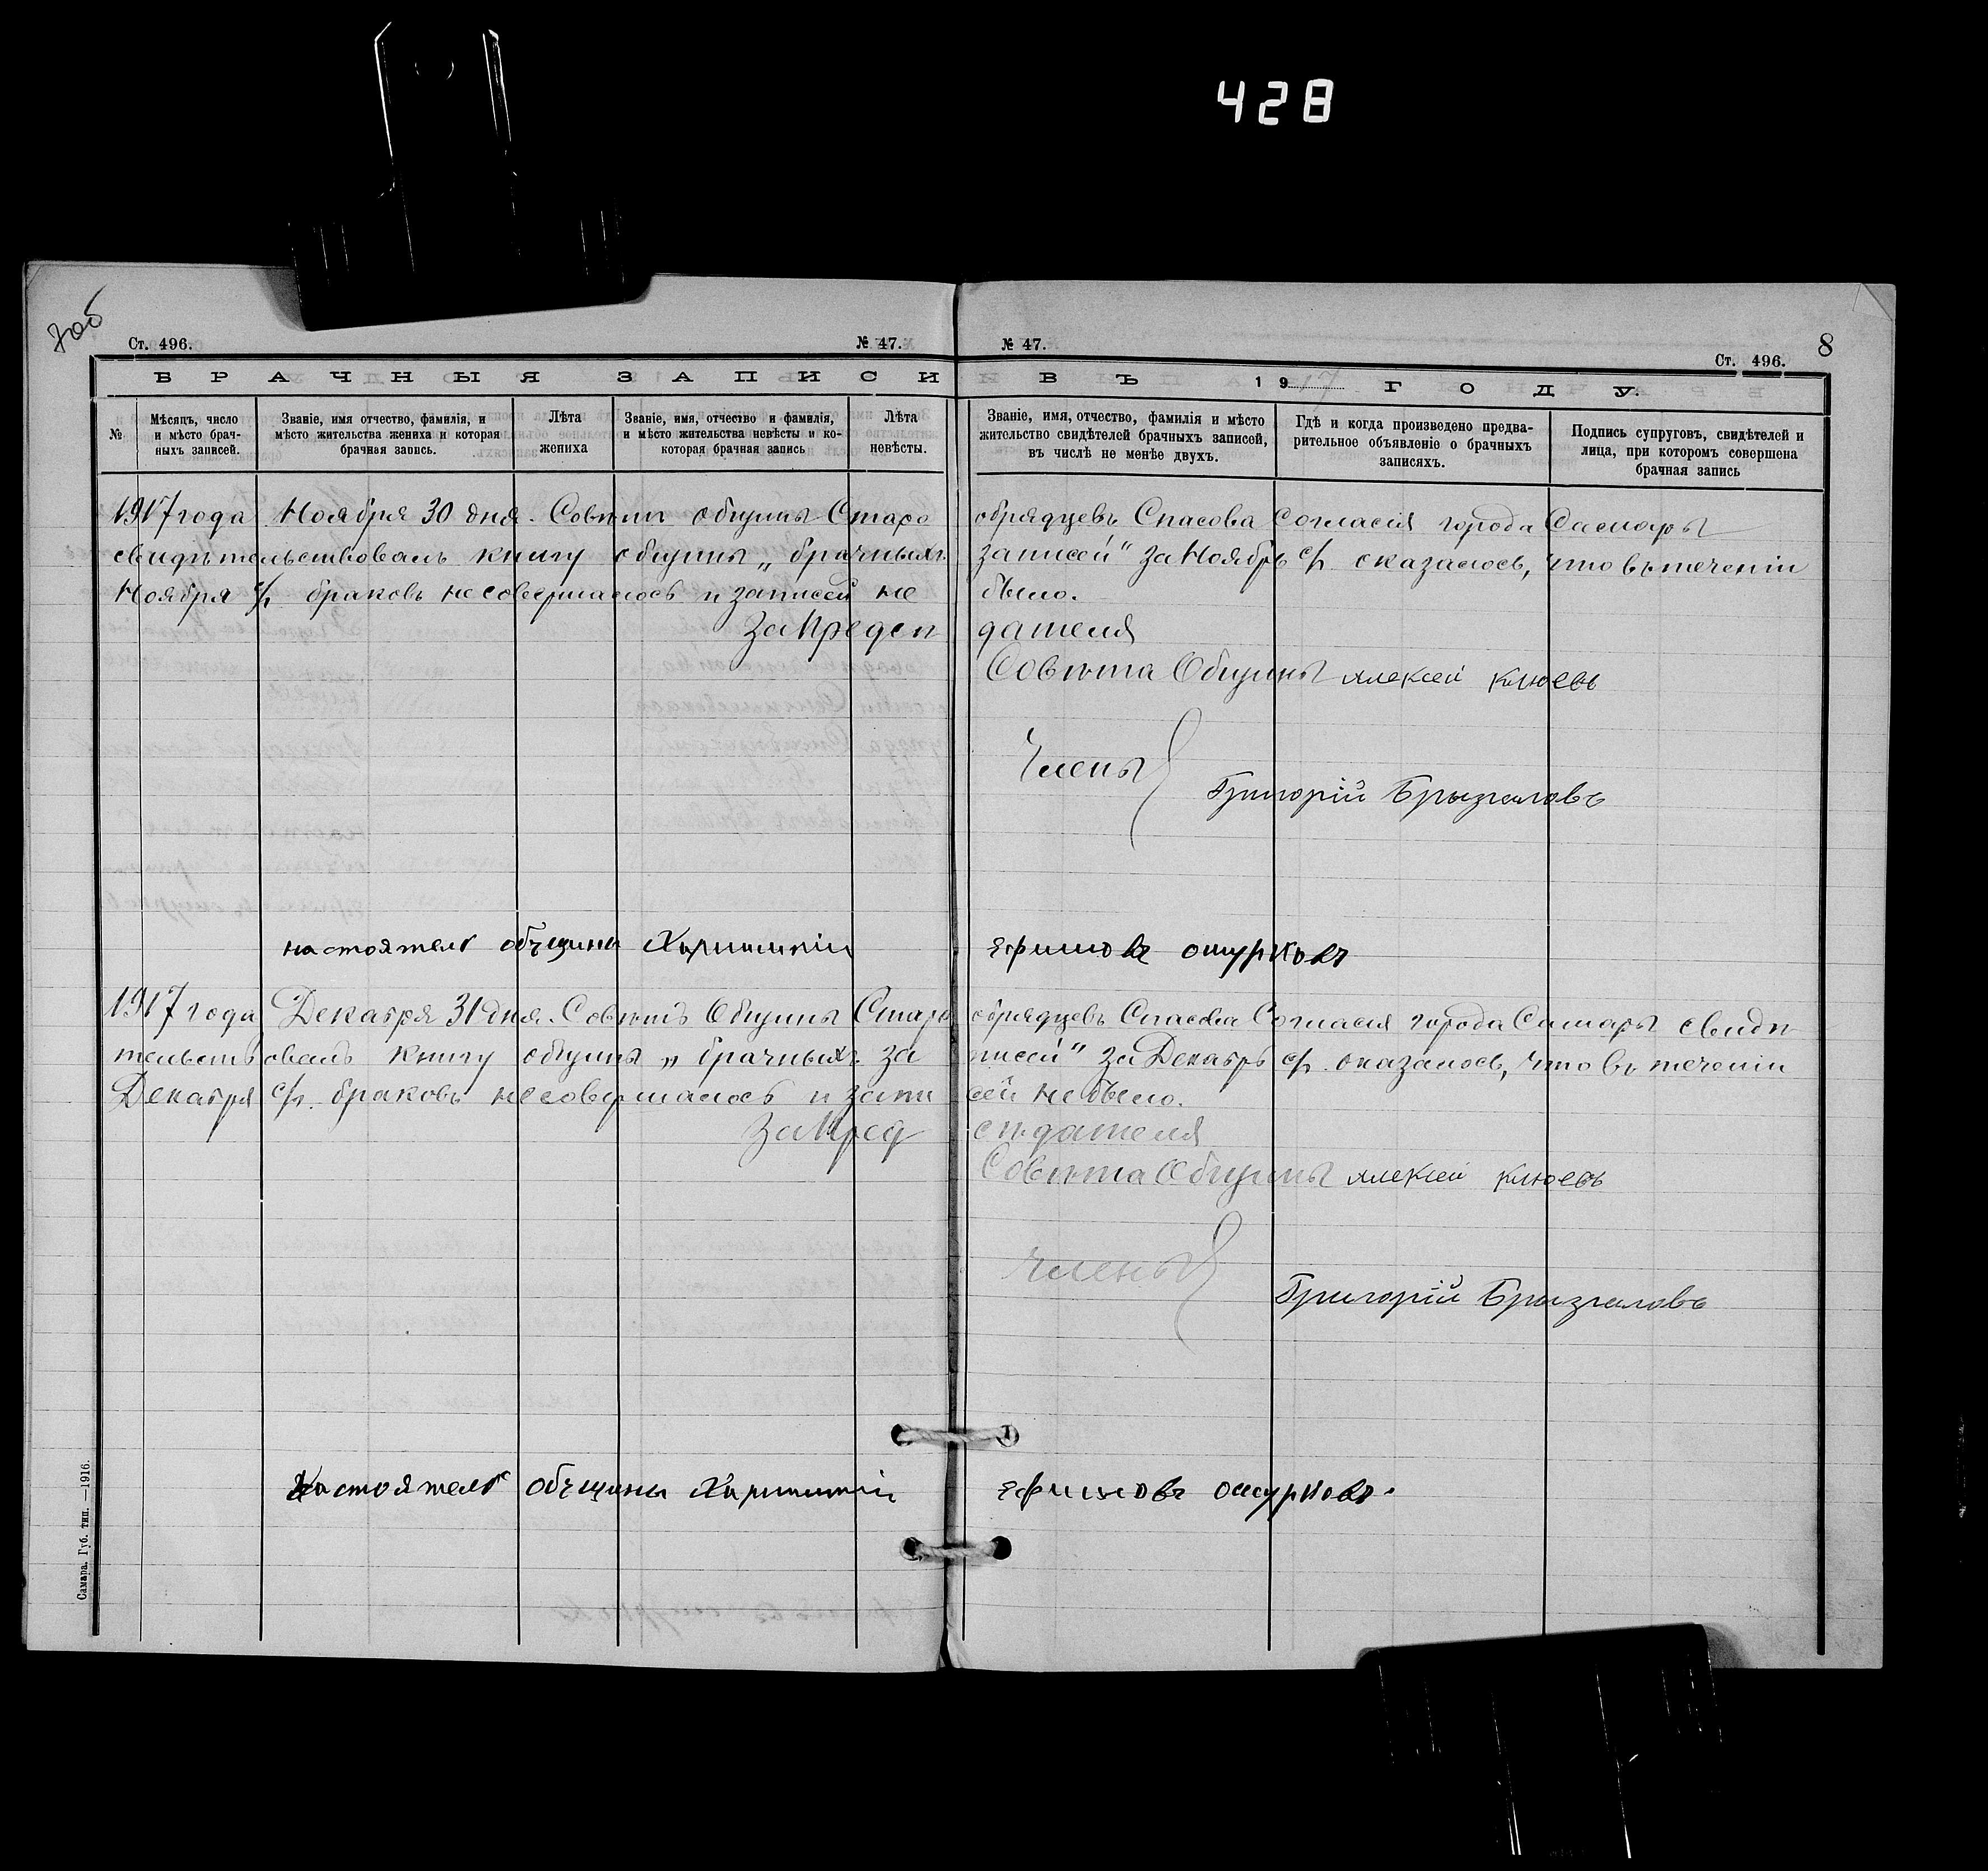 428
7об
Ст. 496. № 47. № 47. Ст. 496. 8
БРАЧНЫЯ ЗАПИСИ ВЪ 1917 ГОДУ.
№
Мѣсяцъ, число
и мѣсто брач-
ныхъ записей.
Званіе, имя отчество, фамилія, и
мѣсто жительства жениха и которая
брачная запись.
Лѣта
жениха
Званіе, имя, отчество и фамилія,
и мѣсто жительства невѣсты и ко-
которая брачная запись
Лѣта
невѣсты.
Званіе, имя, отчество, фамилія и мѣсто
жительство свидѣтелей брачныхъ записей,
въ числѣ не менѣе двухъ.
Гдѣ и когда произведено предва-
рительное объявленіе о брачныхъ
записяхъ.
Подпись супруговъ, свидѣтелей и
лица, при которомъ совершена
брачная запись
1917 года Ноября 30 дня. Совѣтъ общины Старо обрядцевъ Спасова Согласія города Самары
свидѣтельствовалъ книгу общины „брачныхъ записей" за Ноябрь с/г. оказалось, что въ теченіи
Ноября с/г. браковъ не совершалось и записей не было.
За Предсѣ дателя
Совѣта Общины Алексей Клюевъ
Члены
Григорій Брызгаловъ
настоятель общины Харитоній Ефимовъ ошурковъ
1917 года Декабря 31 дня. Совѣтъ Общины Старо обрядцевъ Спасова Согласія города Самары свидѣ
тельствовалъ книгу общины „брачныхъ за писей" за Декабрь с/г. оказалось, что въ теченіи
Декабря с/г. браковъ несовершалось и запи сей не было.
За Пред сѣдателя
Совѣта Общины Алексей Клюевъ
Члены
Григорій Брызгаловъ
настоятель общины Ефимовъ ошурковъ.
Самара. Губ. тип. —1916.